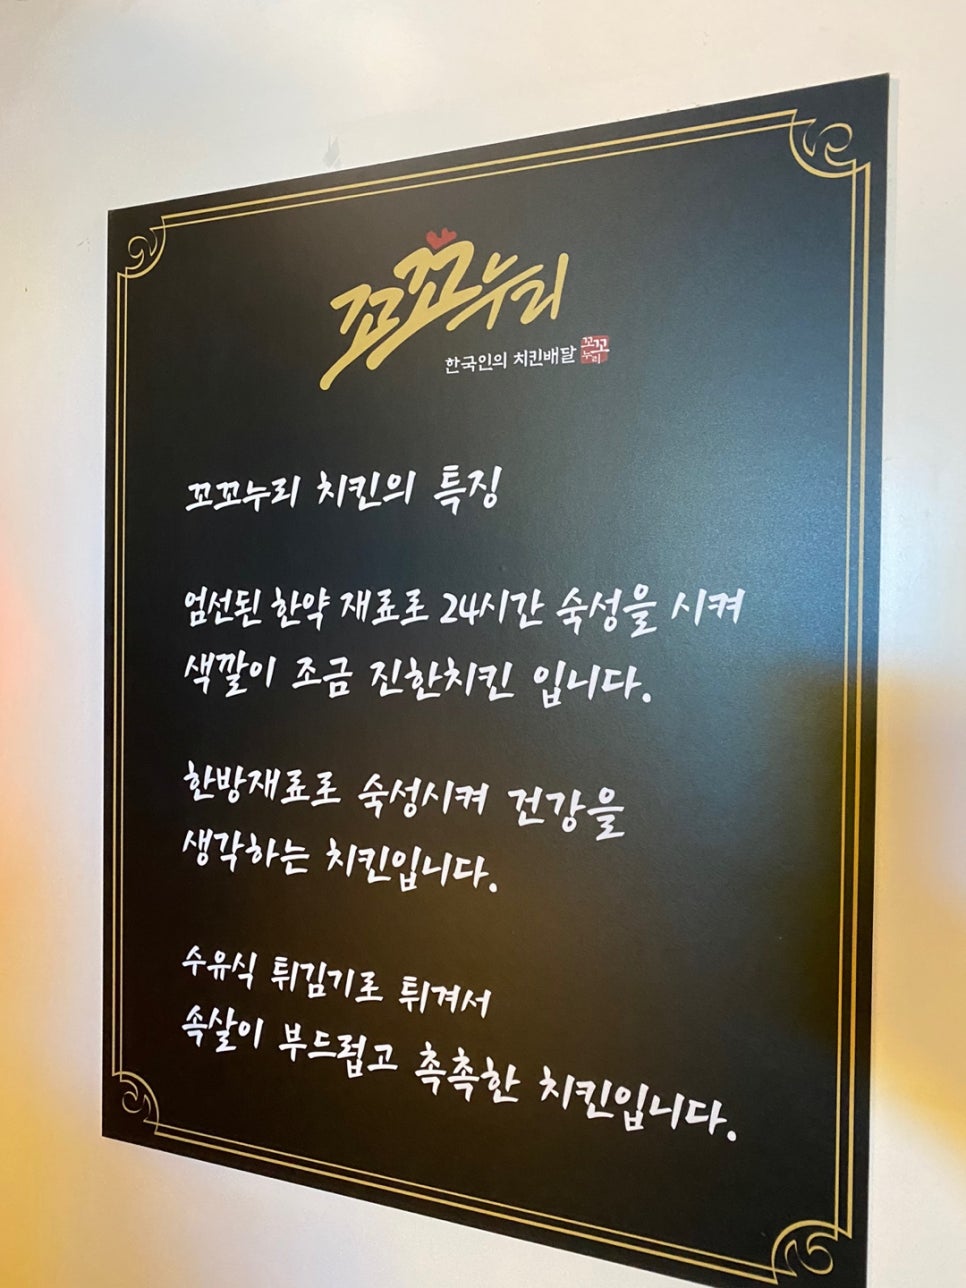 꼬꼬누리
한국인의 치킨배달 꼬꼬
누리
꼬꼬누리 치킨의 특징
엄선된 한약 재료로 24시간 숙성을 시켜
색깔이 조금 진한치킨 입니다.
한방재료로 숙성시켜 건강을
생각하는 치킨입니다.
수유식 튀김기로 튀겨서
속살이 부드럽고 촉촉한 치킨입니다.